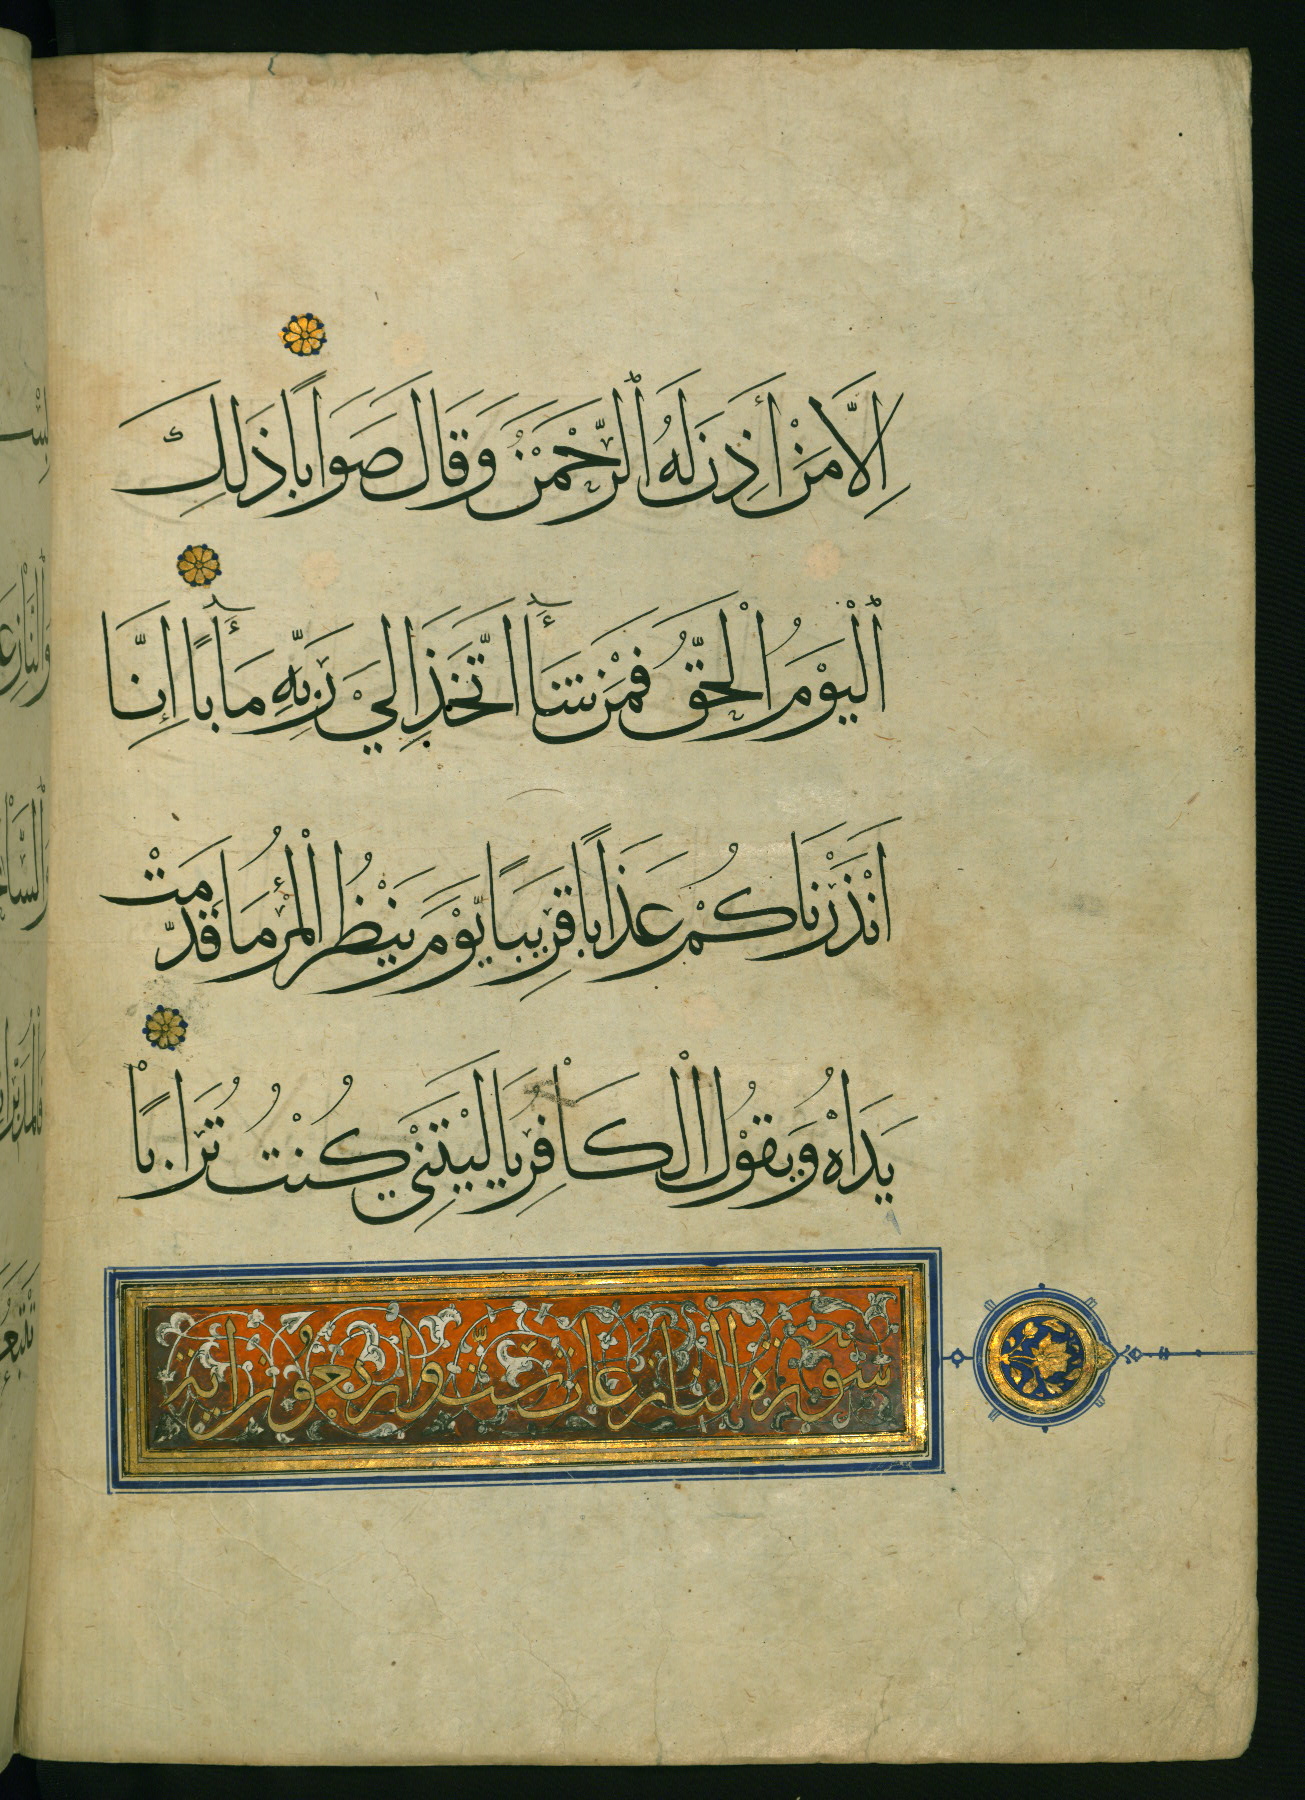 اِلَّا مَنْ أَذِنَ لَهُ الرَّحْمَنُ وَقَالَ صَوَابًا ذَلِكَ
الْيَوْمُ الْحَقُّ فَمَنْ شَأَ اتَّخَذَ اِلَي رَبِّهِ مَأَبًا اِنَّا
اَنْذَرْنَاكُمْ عَذَابًا قَرِيبًا يَّوْمَ يَنْظُرُ الْمَرْءُ مَا قَدَّمَتْ
يَدَاهُ وَيَقُوْلُ الْكَافِرُ يَا لَيْتَنِي كُنْتُ تُرَابًا
سورة النازعات ستّ واربعون اية